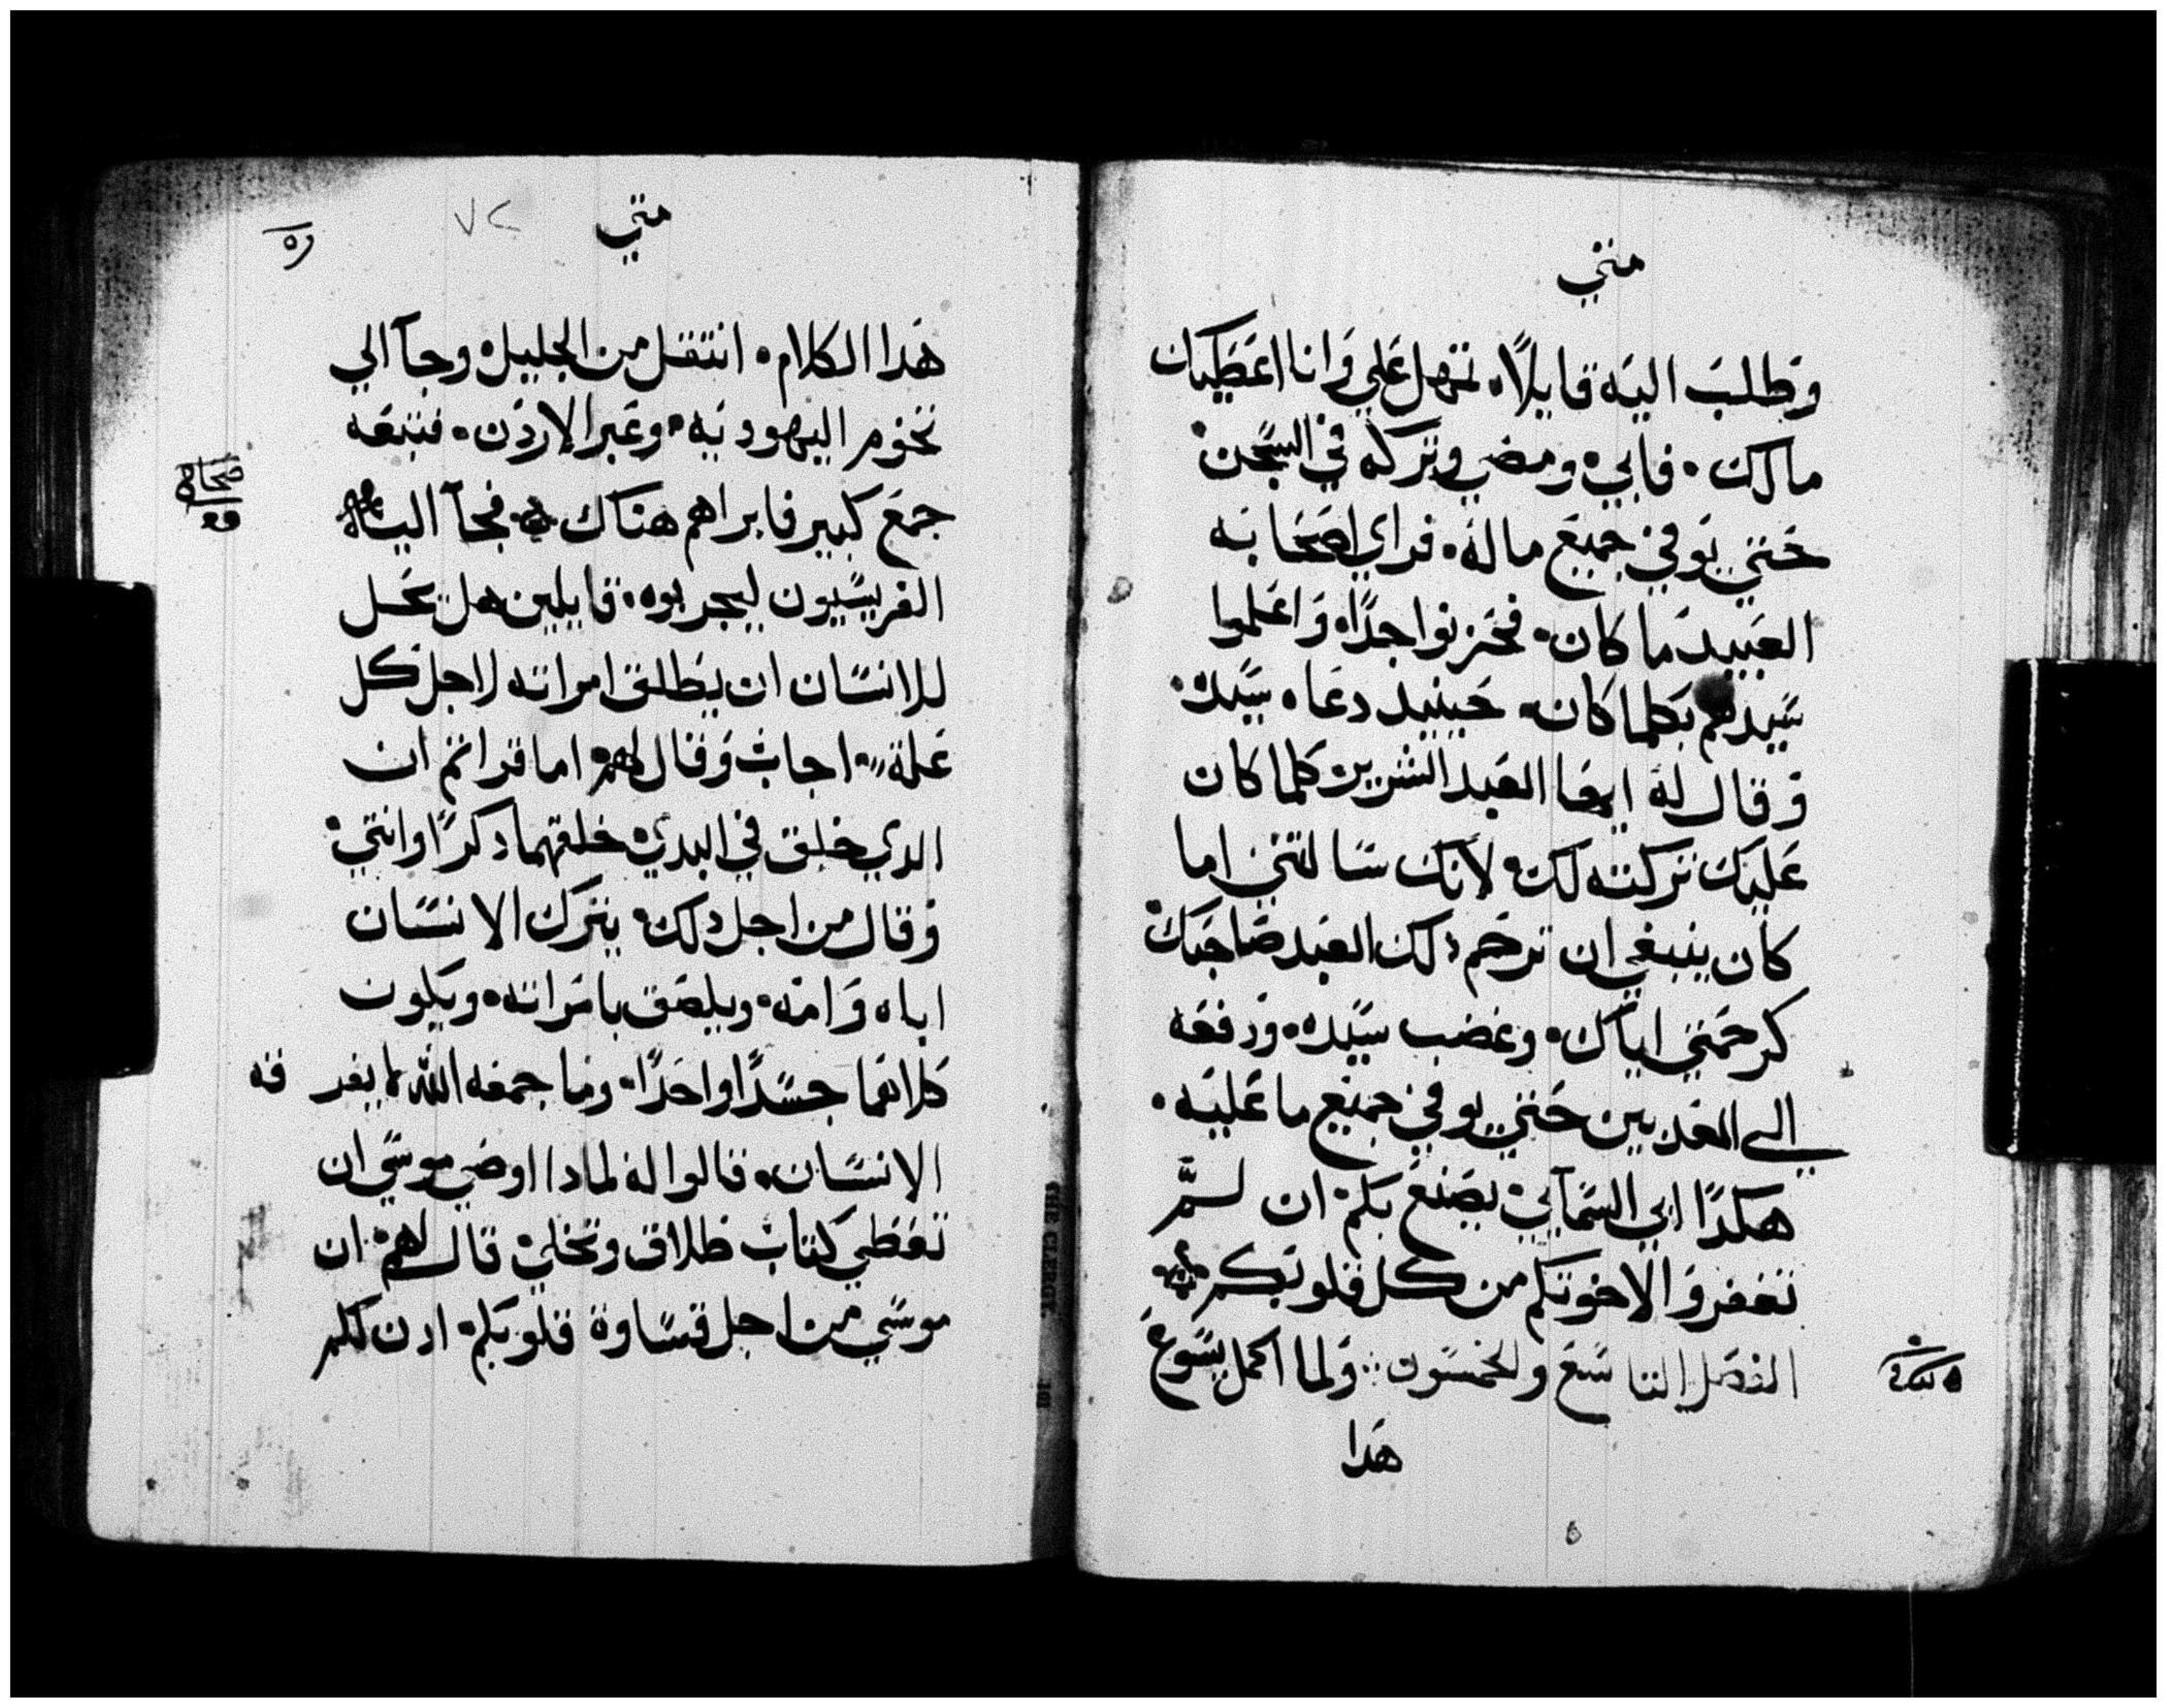 متي
وطلب اليه قايلاً تمهل علي وانا اعطيك
مالك فابي ومضي وتركه في السجن
حتي يوفي جميع ماله فراي اصحابه
العبيد ما كان فحزنوا جداً واعلموا
سيدهم بكلما كان حينيد دعاه سيده
وقال له ايها العبد الشرير كلما كان
عليك تركته لك لانك سالتني اما
كان ينبغي ان ترحم دلك العبد صاحبك
كرحمتي اياك وغضب سيده ودفعه
الي المعدبين حتي يوفي جميع ما عليه
هكدا ابي السمآيي يصنع بكم ان لم
تغفروا لاخوتكم من كل قلوبكم
الفصل التاسع والخمسون ولما اكمل يسوع
هدا
متي
٧٢
هدا الكلام انتقل من الجليل وجآ الي
تخوم اليهوديه وعبر الاردن فتبعه
جمع كبير فابراهم هناك فجآ اليه
الفريسيون ليجربوه قايلين هل يحل
للانسان ان يطلق امراته لاجل كل
علة اجاب وقال لهم اما قراتم ان
الدي خلق في البدي خلقهما دكرًا وانتي
وقال من اجل دلك يترك الانسان
اباه وامه ويلصق بامراته ويكون
كلاهما جسدًا واحدًا وما جمعه الله لا يفرقه
الانسان قالوا له لمادا اوصي موسي ان
تعطي كتاب طلاق وتخلي قال لهم ان
موسي من اجل قساوة قلوبكم ادن لكم